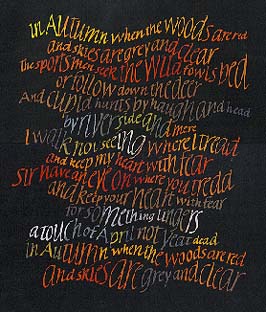 in Autumn when the woods are red
and skies are grey and clear
The sportsmen seek the wild fowls bed
or follow down the deer
And cupid hunts by haugh and head
by river side and mere
I walk not seeing where I tread
and keep my heart with fear
Sir have an eye on where you tread
and keep your heart with fear
for something lingers
a touch of April not year dead
in Autumn when the woods are red
and skies are grey and clear